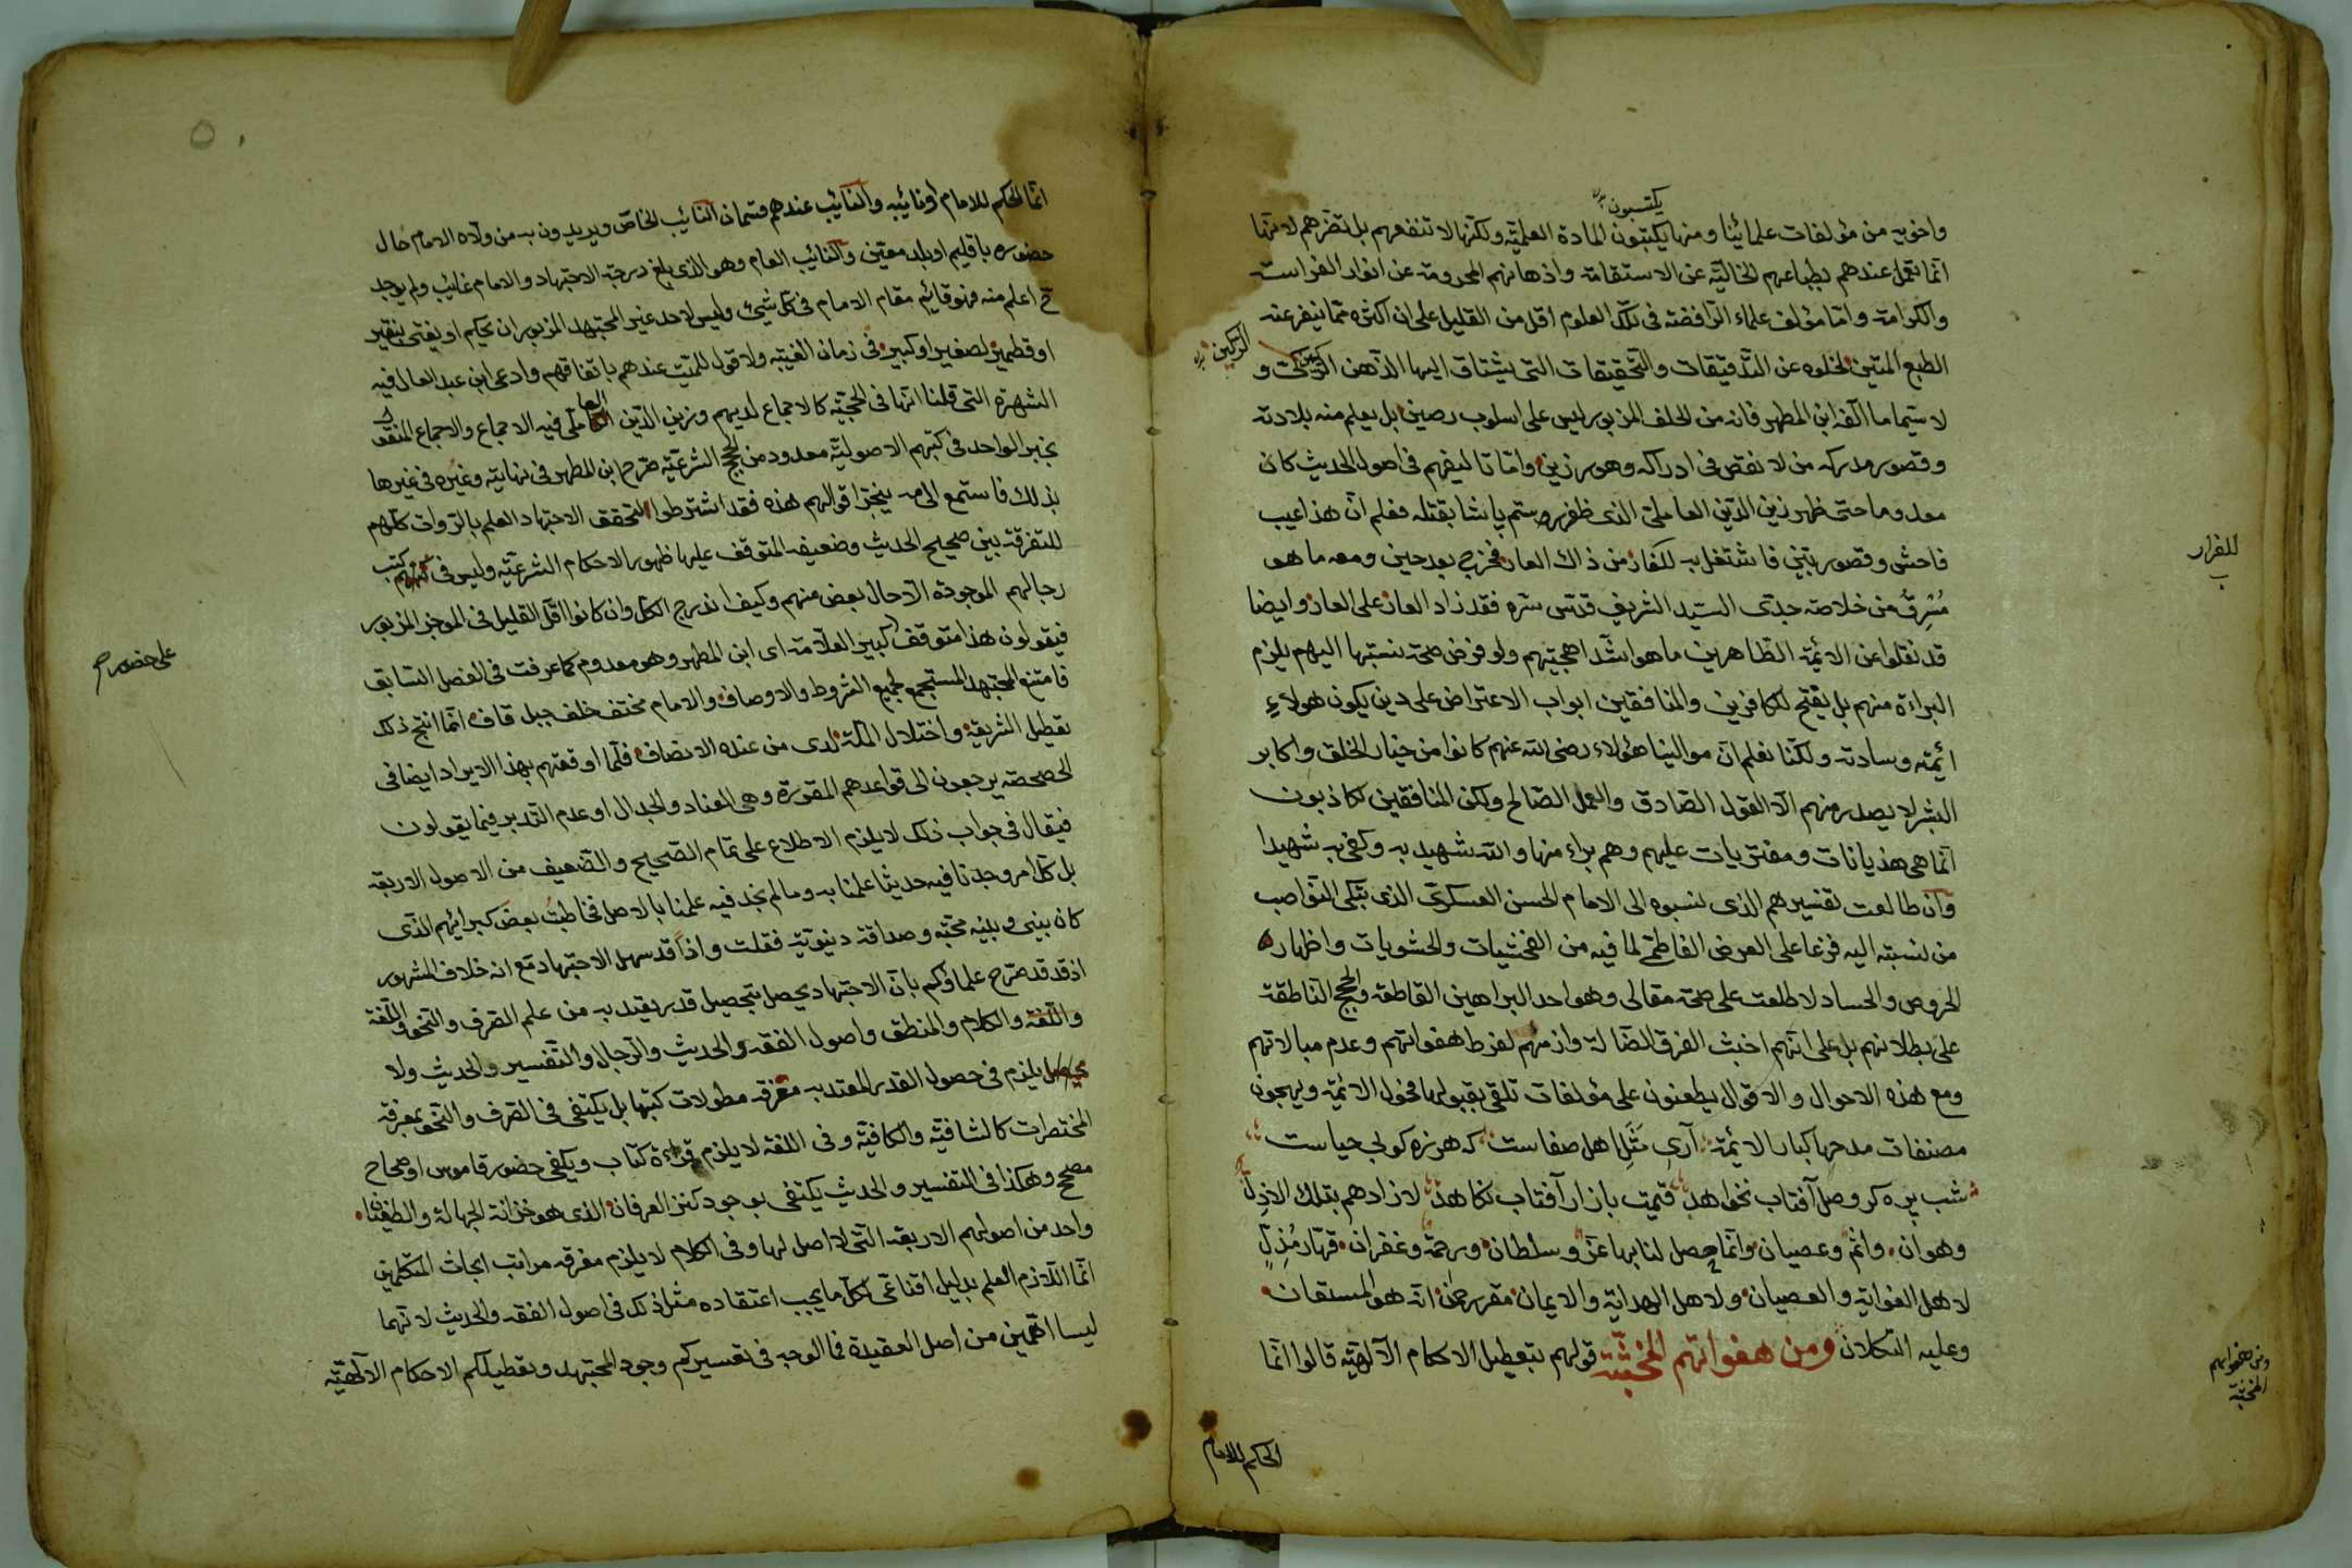 يكتسبون
واخويه من مؤلفات علمائنا ومنها يكتبون المادة العلمية ولكنها لا تنفعهم بل تضرهم لانها
انما تعمل عندهم بطباعهم الخالية عن الاستقامة واذهانهم المحرومة عن انوار الفراسة
والكرامة واما مؤلف علماء الرافضة فى تلك العلوم اقل من القليل على ان اكثره مما ينفر عنه
الطبع المتين لخلوه عن التدقيقات والتحقيقات التى يشتاق اليها الذهن الركين و
الركين
لا سيما ما الفه ابن المطهر فانه من الخلف المزبور ليس على اسلوب رصين بل يعلم منه بلادته
وقصور مدركه من لا نقص فى ادراكه وهو رزين واما تاليفهم فى اصول الحديث كان
معدوما حتى ظهر زين الدين العاملى الذى ظفر رستم پاشا بقتله فعلم ان هذا عيب
فاحش وقصور بين فاشتغل به للفار من ذاك العار فخرج بعد حين ومعه ما هو
للفرار
مُسْرِقٌ من خلاصة جدى السيد الشريف قدس سره فقد زاد العار على العار وايضا
قد نقلوا عن الائمة الطاهرين ما هو اشد اهجيتهم ولو فرض صحة نسبتها اليهم يلزم
البراءة منهم بل يفتح للكافرين والمنافقين ابواب الاعتراض على دين يكون هولاءِ
ائمته وسادته ولكنا نعلم ان موالينا هؤلاء رضى الله عنهم كانوا من خيار الخلق واكابر
البشر لا يصدر منهم الا القول الصادق والعمل الصالح ولكن المنافقين لكاذبون
انما هى هذيانات ومفتريات عليهم وهم براء منها والله شهيد به وكفى به شهيدا
وان طالعت تفسيرهم الذى نسبوه الى الامام الحسن العسكرى الذى تبكى النواصب
من نسبته اليه فزعا على العرض الفاطمى لما فيه من الفحشيات والحشويات واظهاره
الحروص والحساد لاطلعت على صحة مقالى وهو احد البراهين القاطعة والحجج الناطقة
على بطلانهم بل على انهم اخبث الفرق الضالة واذمهم لفرط هفواتهم وعدم مبالاتهم
ومع هذه الاحوال والاقوال يطعنون على مؤلفات تلقى بقبولها فحول الائمة ويهجون
مصنفات مدحها كبار الائمة آرى مَثَلِ اهل صفاست كه هرزه كو بى حياست
شب پره كر وصل آفتاب نخواهد قيمت بازار آفتاب نكاهد لا زادهم بقلك الا ذل
وهوان واثم وعصيان وانما حصل لنا بها عز وسلطان ورحمة وغفران قهار مُذِلٍّ
لاهل الغواية والعصيان ولاهل الهداية والايمان مقرر حمن انه هو المستعان
وعليه التكلان ومن هفواتهم المخبثة قولهم بتعطيل الاحكام الالهية قالوا انما
ومن هفواتهم
المخبثة
الحكم للامام
٥٠
انما الحكم للامام او نائبه والنائب عندهم قسمان النائب الخاص ويريدون به من ولاه الامام حال
حضوره باقليم او بلد معين والنائب العام وهو الذى بلغ درجة الاجتهاد والامام غائب ولم يوجد
ح اعلم منه فهو قائم مقام الامام فى كل شىء وليس لاحد غير المجتهد المزبور ان يحكم او يفتى بنقير
او قطمير لصغير او كبير فى زمان الغيبة ولا قول للميت عندهم باتفاقهم وادعى ابن عبد العال فيه
الشهرة التى قلنا انها فى الحجية كالاجماع لديهم وزين الدين العاملى فيه الاجماع والاجماع المنقول
بخبر الواحد فى كتبهم الاصولية معدود من الحجج الشرعية صرح ابن المطهر فى نهايته وغيره فى غيرها
بذلك فاستمع الى م ينجر اقوالهم هذه فقد اشترطوا لتحقق الاجتهاد العلم بالروات كلهم
للتفرقة بين صحيح الحديث وضعيفه المتوقف عليها ظهور الاحكام الشرعية وليس فى كتب
رجالهم الموجودة الآ حال بعض منهم وكيف اندرج الكل وان كانوا اقل القليل فى الموجز المزبور
على حضور
فيقولون هذا متوقف كبير العلامة اى ابن المطهر وهو معدوم كما عرفت فى الفصل السابق
فامتنع المجتهد المستجمع لجميع الشروط والاوصاف والامام مختف خلف جبل قاف انما انتج ذلك
تعطيل الشريعة واختلال الملة لدى من عنده الانصاف فلما اوقعتهم بهذا الايراد ايضا فى
الحصحصة يرجعون الى قواعدهم المقررة وهى العناد والجدال او عدم التدبر فيما يقولون
فيقال فى جواب ذلك لا يلزم الاطلاع على تمام الصحيح والضعيف من الاصول الاربعة
بل كل امر وجدنا فيه حديثا علمنا به وما لم نجد فيه علمنا بالاصل فخاطبت بعض كبرائهم الذى
كان بينى وبينه محبة وصداقة دنيوية فقلت واذاً قد سهل الاجتهاد مع انه خلاف المشهور
اذ قد قد صرح علماؤكم بان الاجتهاد يحصل بتحصيل قدر يعتد به من علم الصرف والنحو واللغة
واللغة والكلام والمنطق واصول الفقه والحديث والرجال والتفسير والحديث ولا
يلزم فى حصول القدر المعتد به معرفة مطولات كتبها بل يكتفى فى الصرف والنحو بمعرفة
المختصرات كالشافية والكافية وفى اللغة لا يلزم قراءة كتاب ويكفى حضور قاموس او صحاح
مصحح وهكذا فى التفسير والحديث يكتفى بوجود كنز العرفان الذى هو خزانة الجهالة والطغيان
واحد من اصولهم الاربعة التى لا اصل لها وفى الكلام لا يلزم معرفة مراتب ابحاث المتكلمين
انما اللازم العلم بدليل اقناعى لكل ما يجب اعتقاده مثل ذلك فى اصول الفقه والحديث لانهما
ليسا اهمين من اصل العقيدة فما الوجه فى تعسيركم وجود المجتهد وتعطيلكم الاحكام الالهية